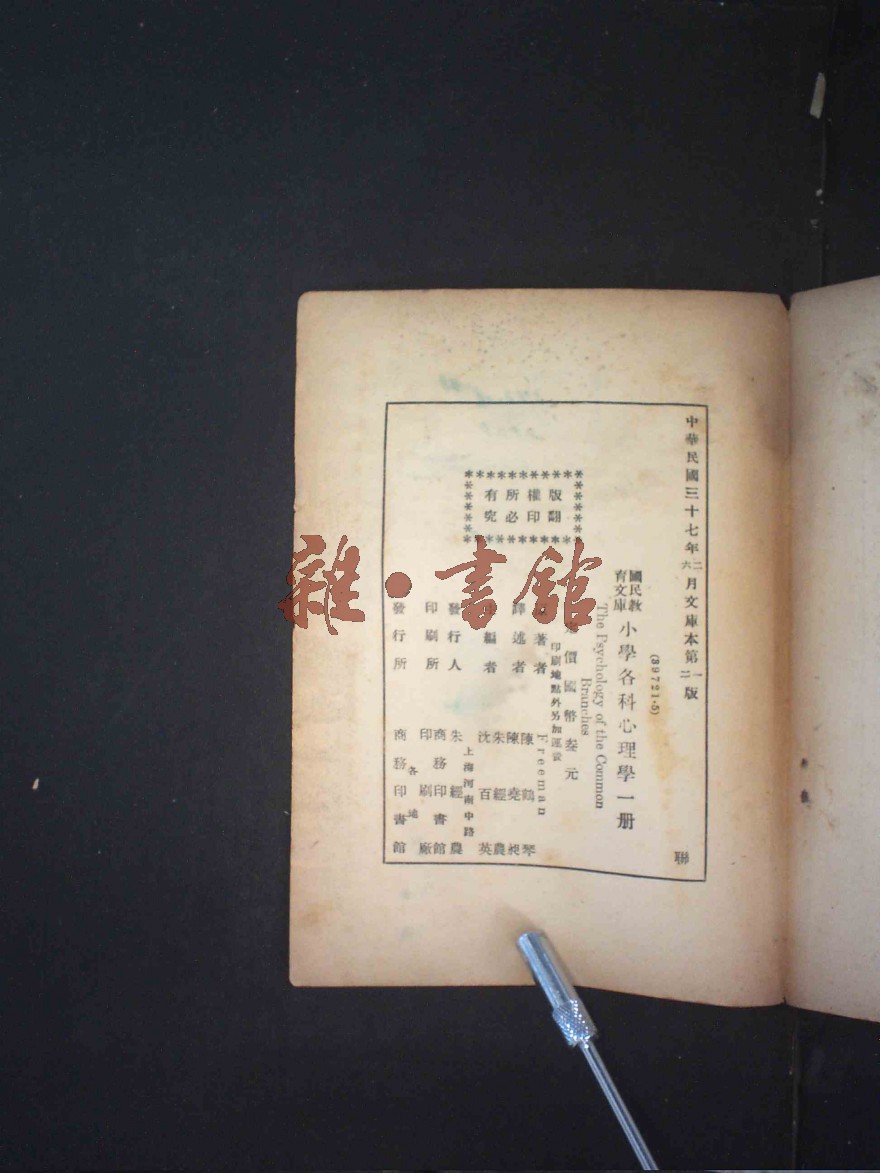 中華民國三十七年二月文庫本第一版
六 二
(39721·5)
國民教育文庫 小學各科心理學一册
The Psychology of the Common
Branches
價國幣叁元
印刷地點外另加運費
著者 Freeman
譯述者 陳鶴琴
陳堯昶
編者 朱經農
沈百英
發行人 朱經農
上海河南中路
印刷所 商務印書館
印刷廠
發行所 各
商務印書館
版權所有
翻印必究
聯
雜·書館